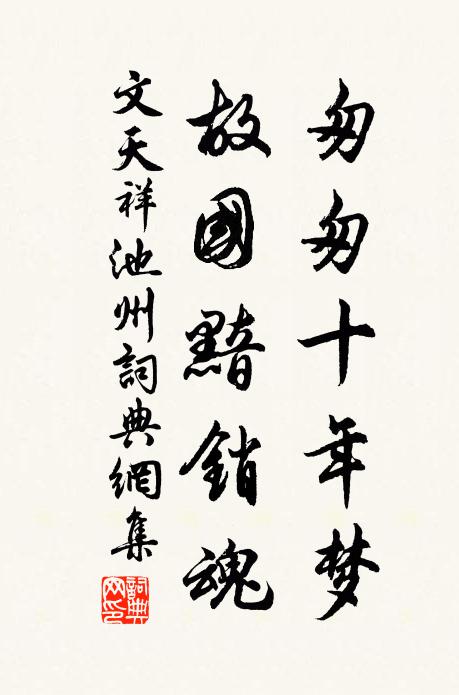 匆匆十年梦
故國黯銷魂
文天祥池州詞典網集
詞典
网印